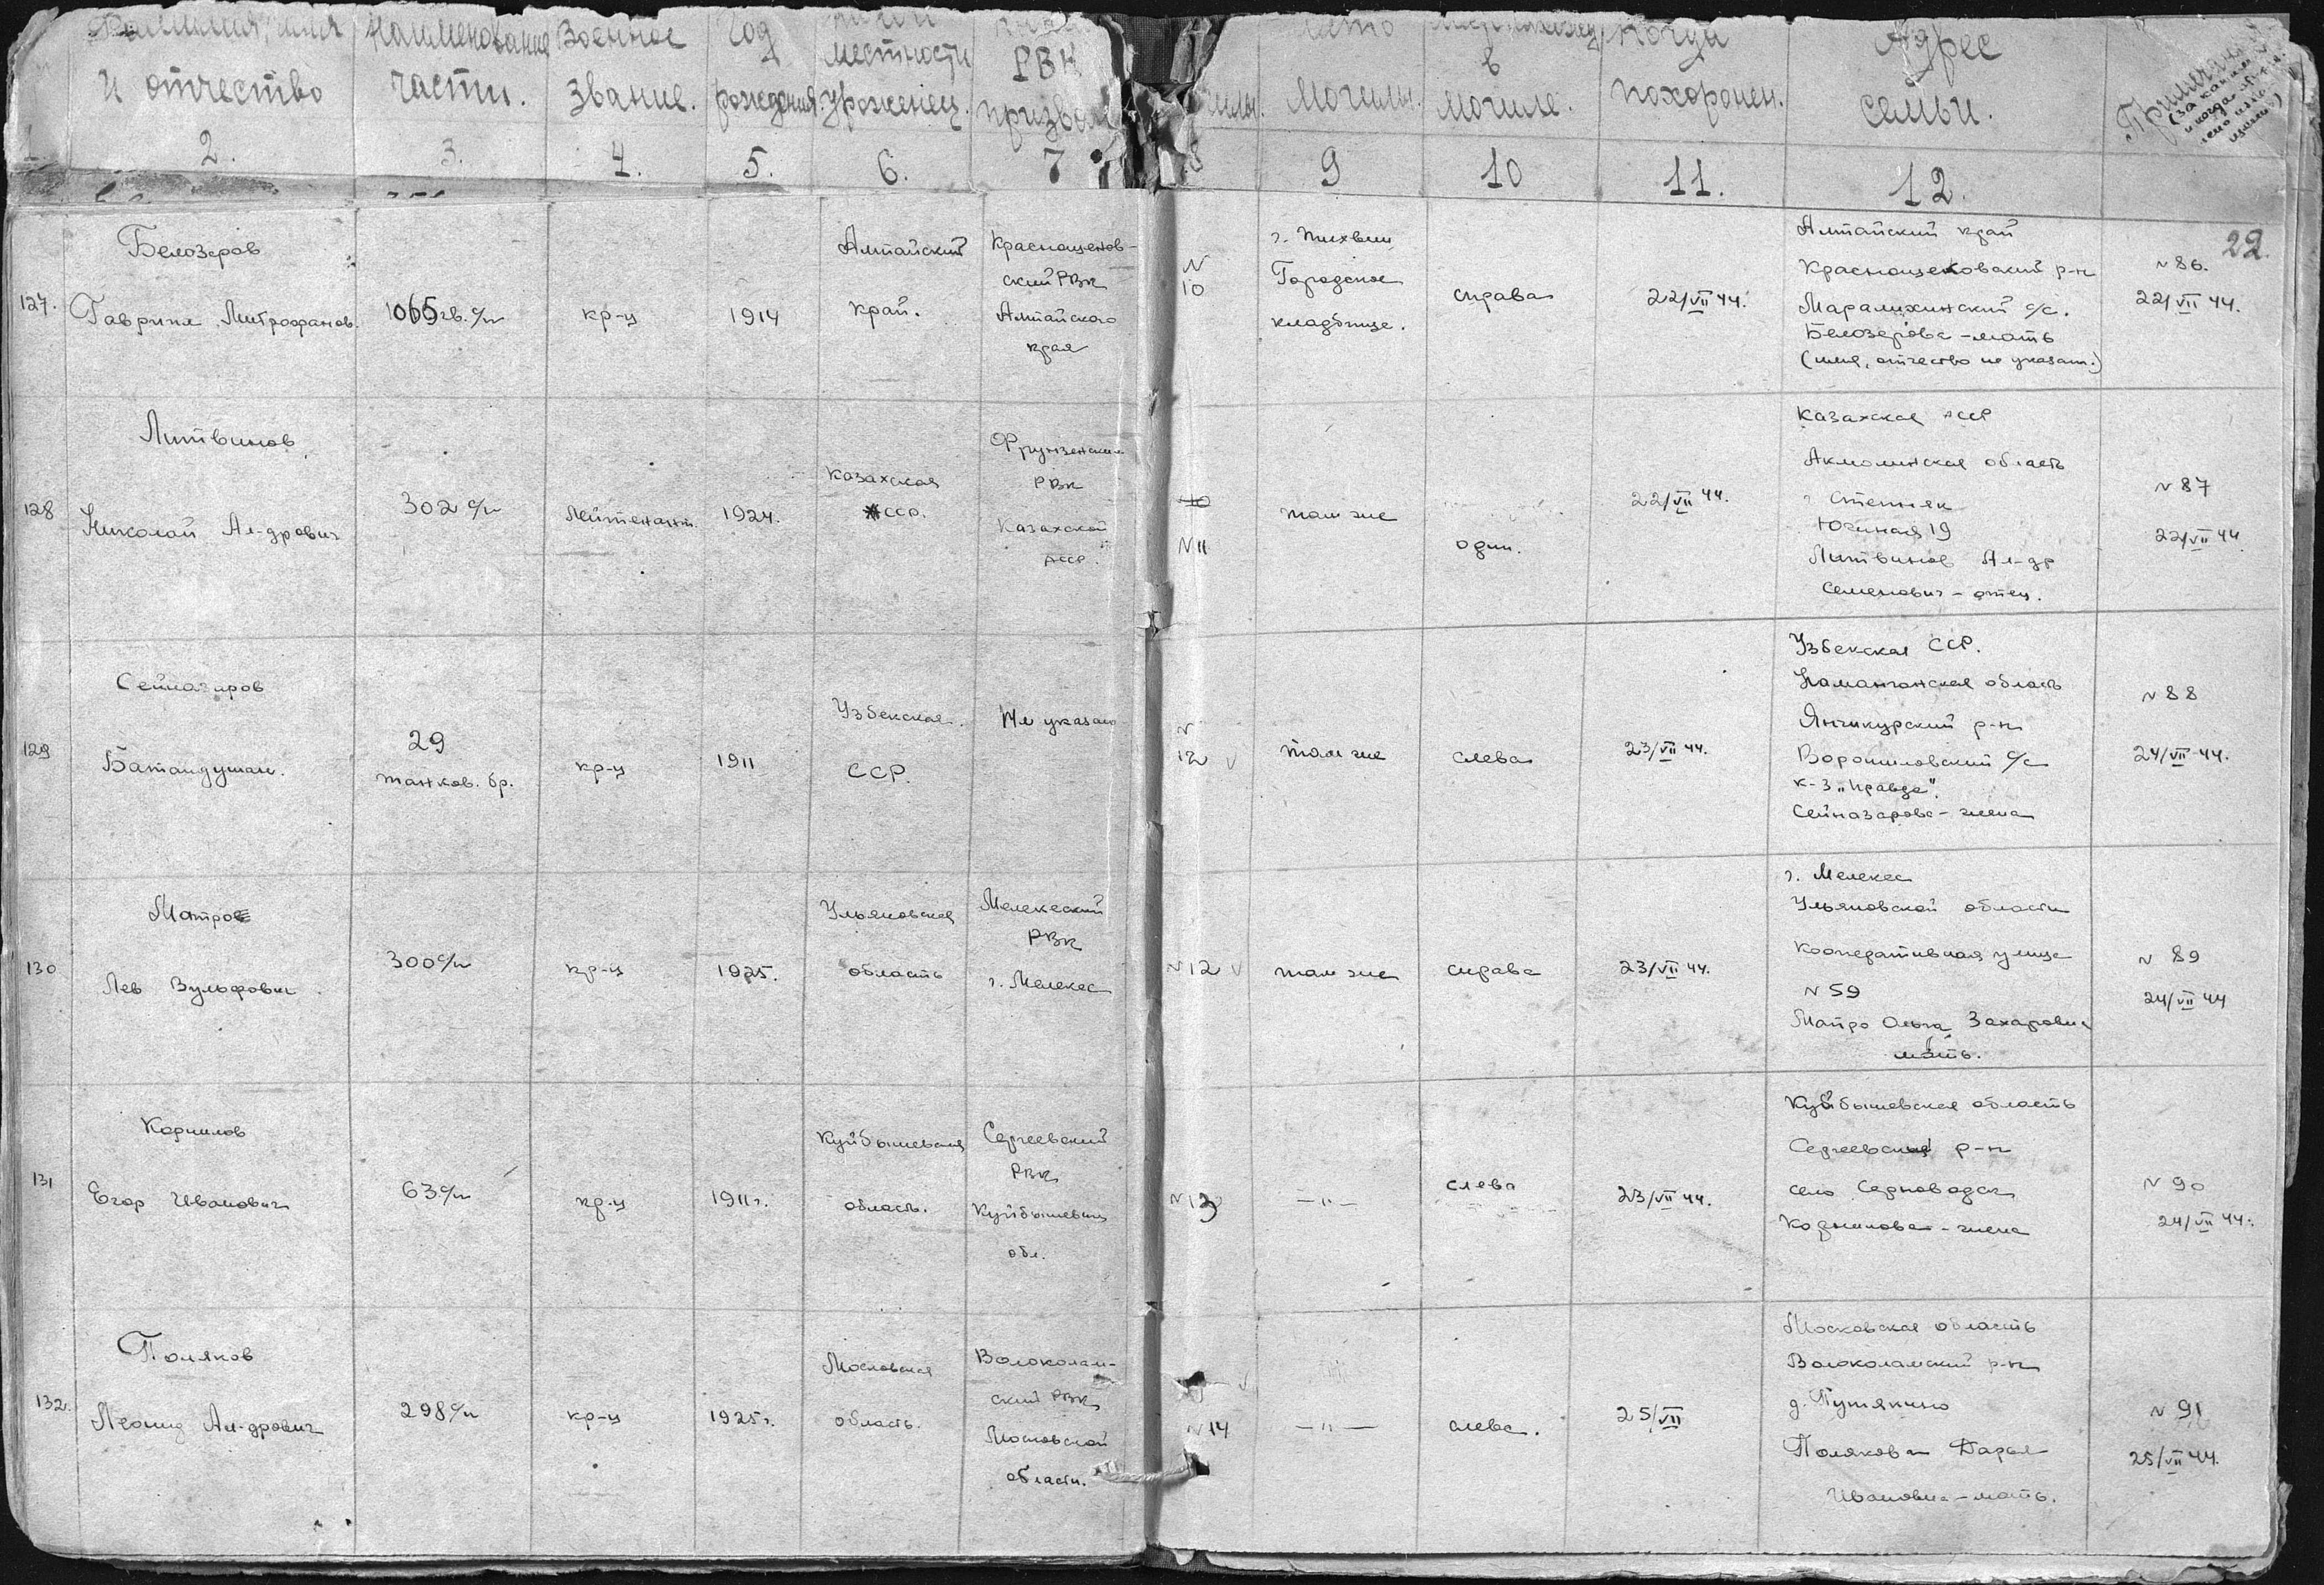 Фамилия, имя и отчество
2.
Наименование части.
3.
Военное звание.
4.
Год рождения
5.
местности уроженец.
6.
РВК призвал
7
8
Могилы.
9
в могиле.
10
Когда похоронен.
11.
Адрес семьи.
12.
22.
127.
Белозеров
Гаврила Митрофанов.
1065 гв. с/п
кр-ц
1914
Алтайский
край.
Краснощеков-
ский РВК
Алтайского
края
N
10
г. Тихвин
Городское
кладбище.
справа
22/VII 44.
Алтайский край
Краснощековский р-н
Маралихинский с/с.
Белозерова - мать
(имя, отчество не указан.)
N 86.
22/VII 44.
128
Литвинов
Николай Ал-дрович
302 с/п
Лейтенант.
1924.
Казахская
ССР.
Фрунзенским
РВК
Казахской
АССР.
10
N 11
там же
один.
22/VII 44.
Казахская АССР
Акмолинская область
г Степняк
19
Литвинов Ал-др
Семенович - отец.
N 87
22/VII 44
129
Сейназаров
Батандушан.
29
танков. бр.
кр-ц
1911
Узбекская
ССР.
Не указано
N
12 v
там же
слева
23/VII 44.
Узбекская ССР.
Наманганская область
Янгикурский р-н
Ворошиловский с/с
к-з „Правда".
Сейназарова - жена
N 88
24/VII 44.
130
Матро
Лев Вульфович
300 с/п
кр-ц
1925.
Ульяновская
область
Мелекеский
РВК
г. Мелекес
N 12 v
там же
справа
23/VII 44.
г. Мелекес
Ульяновской области
Кооперативная улица
N 59
Матро Ольга Захаровна
мать.
N 89
24/VII 44
131
Корнилов
Егор Иванович
63 с/п
кр-ц
1911 г.
Куйбышевская
область.
Сергеевский
РВК
Куйбышевский
обл.
N 13
—"—
слева
23/VII 44.
Куйбышевская область
Сергеевский р-н
село Серноводск
Корнилова - жена
N 90
24/VII 44.
132.
Поляков
Леонид Ал-дрович
298 с/п
кр-ц
1925 г.
Московская
область.
Волоколам-
ский РВК
Московской
области.
N 14
—"—
слева.
25/VII
Московская область
Волоколамский р-н
д. Путятино
Полякова Дарья
Ивановна - мать.
N 91
25/VII 44.